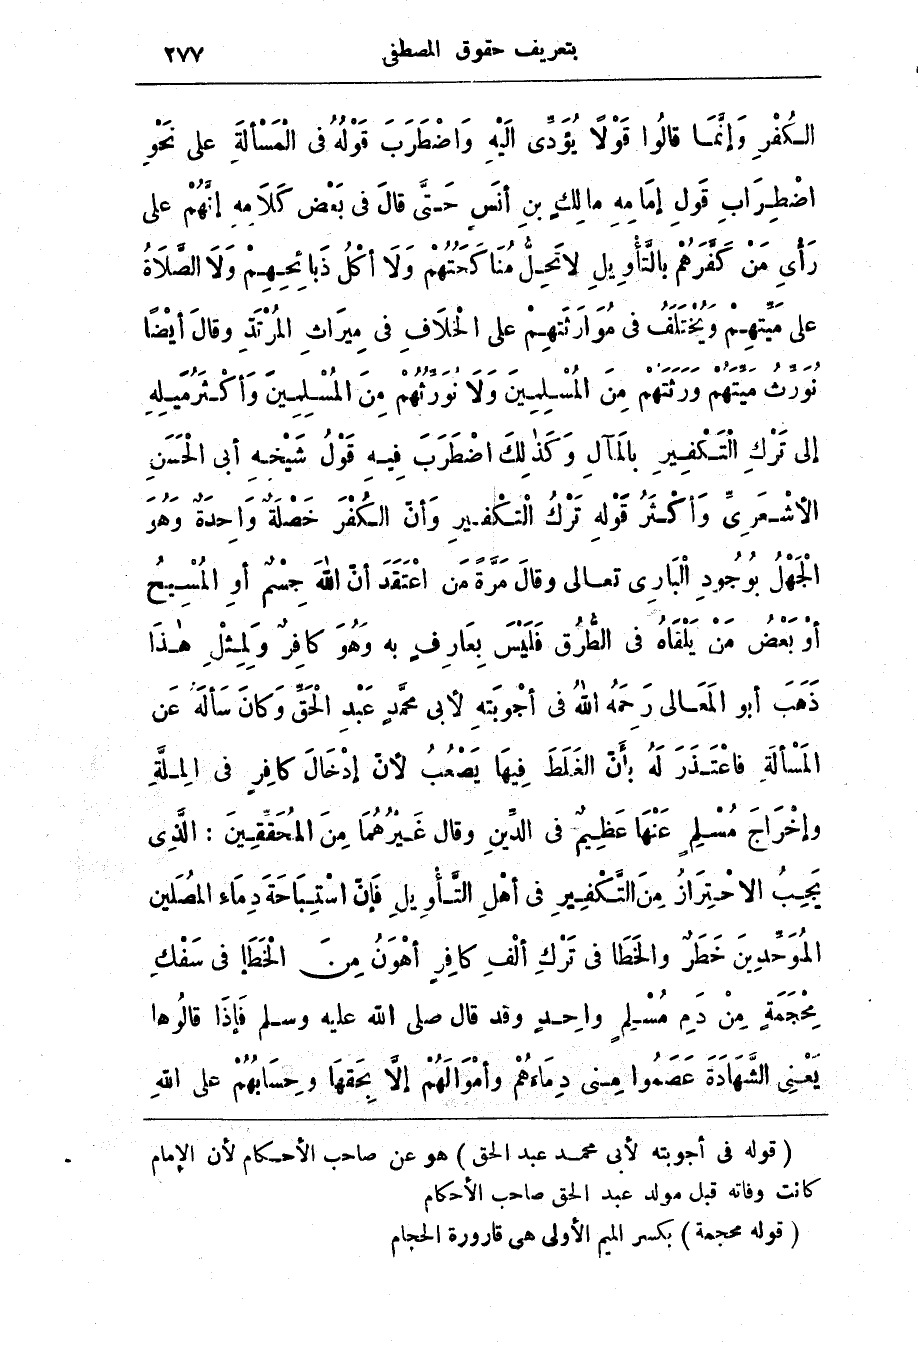 بتعريف حقوق المصطفى ٢٧٧
الكُفْرِ وَإِنَّمَا قالُوا قَوْلًا يُؤَدِّى اليْهِ وَاضْطَرَبَ قَوْلُهُ فى الْمَسْألَةِ على نَحْوِ
اضْطِرَابِ قَولِ إمَامِهِ مالِكِ بنِ أنَسٍ حَتَّى قالَ فى بَعْضِ كَلَامِهِ إنَّهُمْ على
رَأْىِ مَنْ كَفَّرَهُمْ بالتَّأْوِيلِ لاتَحِلُّ مُنَاكَحَتُهُمْ وَلَا أكْلُ ذَبائِحِهِمْ وَلَا الصَّلَاةُ
على مَيِّتِهِمْ وَيُخْتَلَفُ فى مُوَارَثَتِهِمْ على الْخِلَافِ فى مِيرَاثِ المُرْتَدِّ وقالَ أيْضًا
نُوَرِّثُ مَيِّتَهُمْ وَرَثَتَهُمْ مِنَ المُسْلِمِينَ وَلَا نُوَرِّثُهُم مِنَ المُسْلِمِينَ وَأكْثَرُ مَيْلِهِ
إلى تَرْكِ التَّكْفِيرِ بالمَآلِ وَكَذٰلِكَ اضْطَرَبَ فيهِ قَوْلُ شَيْخِهِ أبى الْحَسَنِ
الأشْعَرِىِّ وَأكْثَرُ قَوْلِهِ تَرْكُ التكْفيرِ وَأنّ الكُفْرَ خَصْلَةٌ وَاحِدَةٌ وَهُوَ
الْجَهْلُ بِوُجُودِ الْبَارِى تعالى وقالَ مَرَّةً مَن اعْتَقَدَ أنّ اللهَ جِسْمٌ أوِ المُسِيحُ
أوْ بَعْضُ مَنْ يَلْقَاهُ فى الطُّرُقِ فَلَيْسَ بِعَارِفٍ بِهِ وَهُوَ كافِرٌ وَلِمِثْلِ هٰذَا
ذَهَبَ أبو المَعَالى رَحِمَهُ اللهُ فى أجْوِبَتِهِ لأبى محمَّدٍ عَبْدِ الْحَقِّ وَكانَ سَألَهُ عَن
المَسْألَةِ فاعْتَذَرَ لَهُ بأَنّ الغَلَطَ فِيهَا يَصْعُبُ لأنّ إدْخَالَ كافِرٍ فى المِلَّةِ
وإخْرَاجَ مُسْلِمٍ عَنْهَا عَظِيمٌ فى الدِّينِ وقال غَيْرُهُمَا مِنَ المُحَقِّقِينَ : الَّذِى
يَجِبُ الاحْتِرَازُ مِنَ التَّكْفِيرِ فى أهْلِ التَّأْوِيلِ فَإنّ اسْتِبَاحَةَ دِمَاءِ المُصَلِّينَ
المُوَحِّدِينَ خَطَرٌ والخَطَأ فى تَرْكِ ألْفِ كافِرٍ أهْوَنُ مِنَ الْخَطَإ فى سَفْكِ
مِحْجَمَةٍ مِنْ دَمِ مُسْلِمٍ واحِدٍ وقد قال صلى الله عليه وسلم فَإذَا قالُوها
يَعْنِى الشَّهَادَةَ عَصَمُوا مِنى دِمَاءَهُمْ وأمْوَالَهُمْ إلَّا بِحَقِّهَا وحِسَابُهُمْ على اللهِ
( قوله فى أجوبته لأبى محمد عبد الحق ) هو عن صاحب الأحكام لأن الإمام
كانت وفاته قبل مولد عبد الحق صاحب الأحكام
( قوله محجمة ) بكسر الميم الأولى هى قارورة الحجام